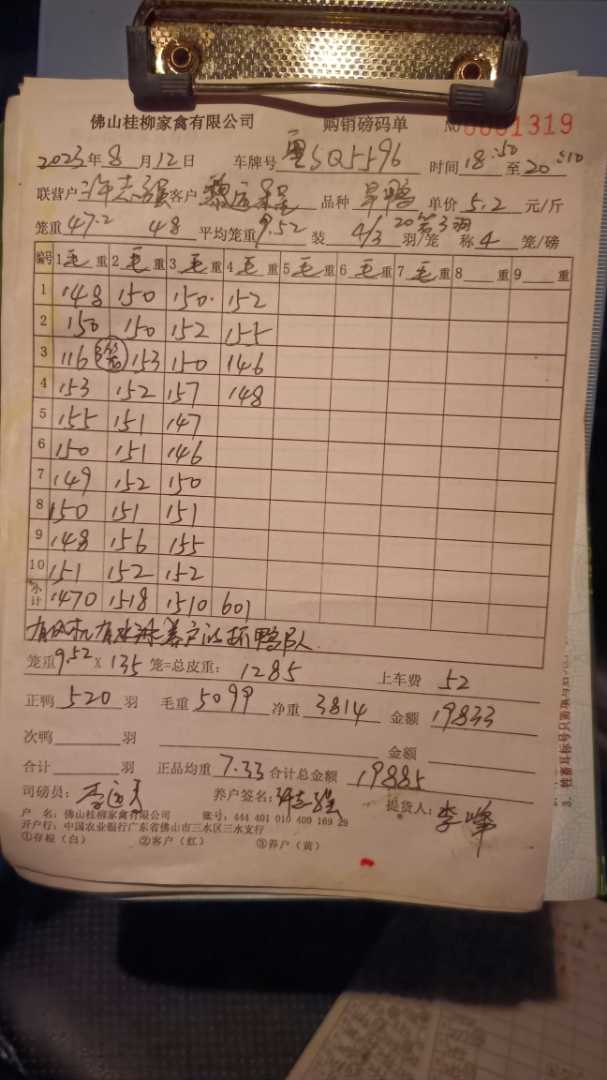 佛山桂柳家禽有限公司 购销磅码单 No 0001319
2023年8月12日 车牌号 粤SQ5596 时间18:50至20:10
联营户 许志强 客户 黎 品种 旱鸭 单价5.2元/斤
笼重47.2 48 平均笼重9.52 装 4/3 羽/笼 20笼3羽 称4笼/磅
编号 1毛重 2毛重 3毛重 4毛重 5毛重 6毛重 7毛重 8 重 9 重
1 148 150 150 152
2 150 150 152 155
3 116 153 150 146
4 153 152 157 148
5 155 151 147
6 150 151 146
7 149 152 150
8 150 151 151
9 148 156 155
10 151 152 152
小计 1470 1518 1510 601
有风机有水淋养户以抓鸭队
笼重9.52×135笼=总皮重:1285 上车费 52
正鸭520羽 毛重5099 净重3814 金额19833
次鸭 羽 金额
合计 羽 正品均重7.33 合计总金额19885
司磅员: 养户签名:许志强 提货人:李峰
户 名:佛山桂柳家禽有限公司 账号:444 401 010 400 169 29
开户行:中国农业银行广东省佛山市三水区三水支行
①存根(白) ②客户(红) ③养户(黄)